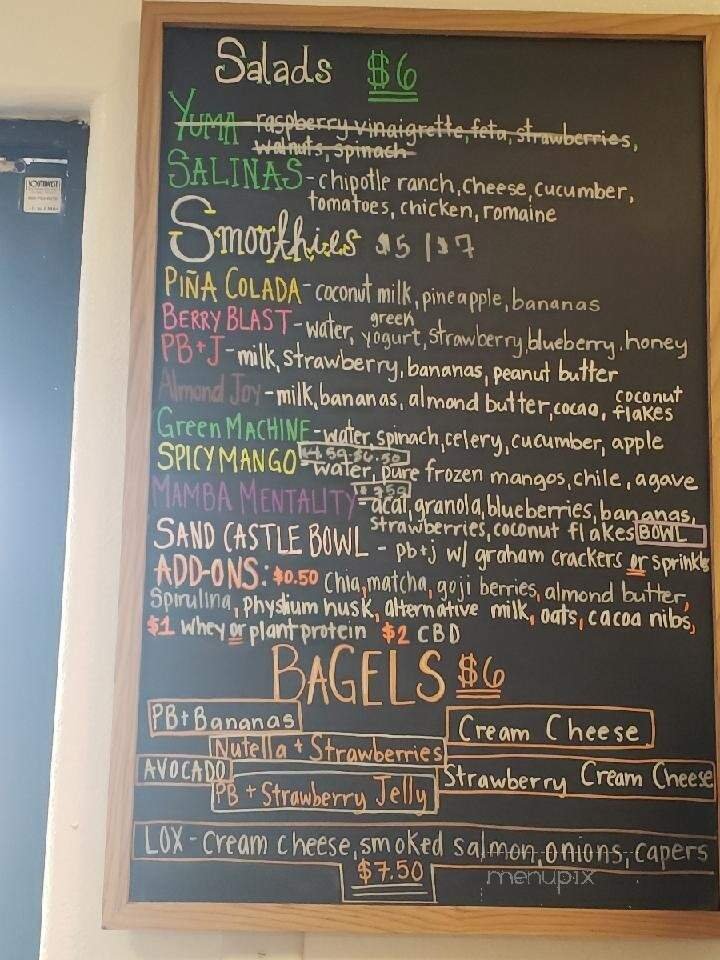 Salads $6
YUMA raspberry vinaigrette, feta, strawberries,
walnuts, spinach
SALINAS - chipotle ranch, cheese, cucumber,
tomatoes, chicken, romaine
Smoothies $5 | $7
PIÑA COLADA - coconut milk, pineapple, bananas
BERRY BLAST - water, green yogurt, strawberry, blueberry, honey
PB+J - milk, strawberry, bananas, peanut butter
Almond Joy - milk, bananas, almond butter, cocao, coconut flakes
Green MACHINE - water, spinach, celery, cucumber, apple
SPICY MANGO - water, pure frozen mangos, chile, agave
MAMBA MENTALITY - acai, granola, blueberries, bananas,
strawberries, coconut flakes BOWL
SAND CASTLE BOWL - pb+j w/ graham crackers or sprinkls
ADD-ONS: $0.50 Chia, matcha, goji berries, almond butter,
Spirulina, physlium husk, alternative milk, oats, cacoa nibs,
$1 whey or plant protein $2 CBD
BAGELS $6
PB+Bananas
Cream Cheese
Nutella + Strawberries
AVOCADO
Strawberry Cream Cheese
PB + Strawberry Jelly
LOX - Cream cheese, smoked salmon, onions, capers
$7.50
menupix